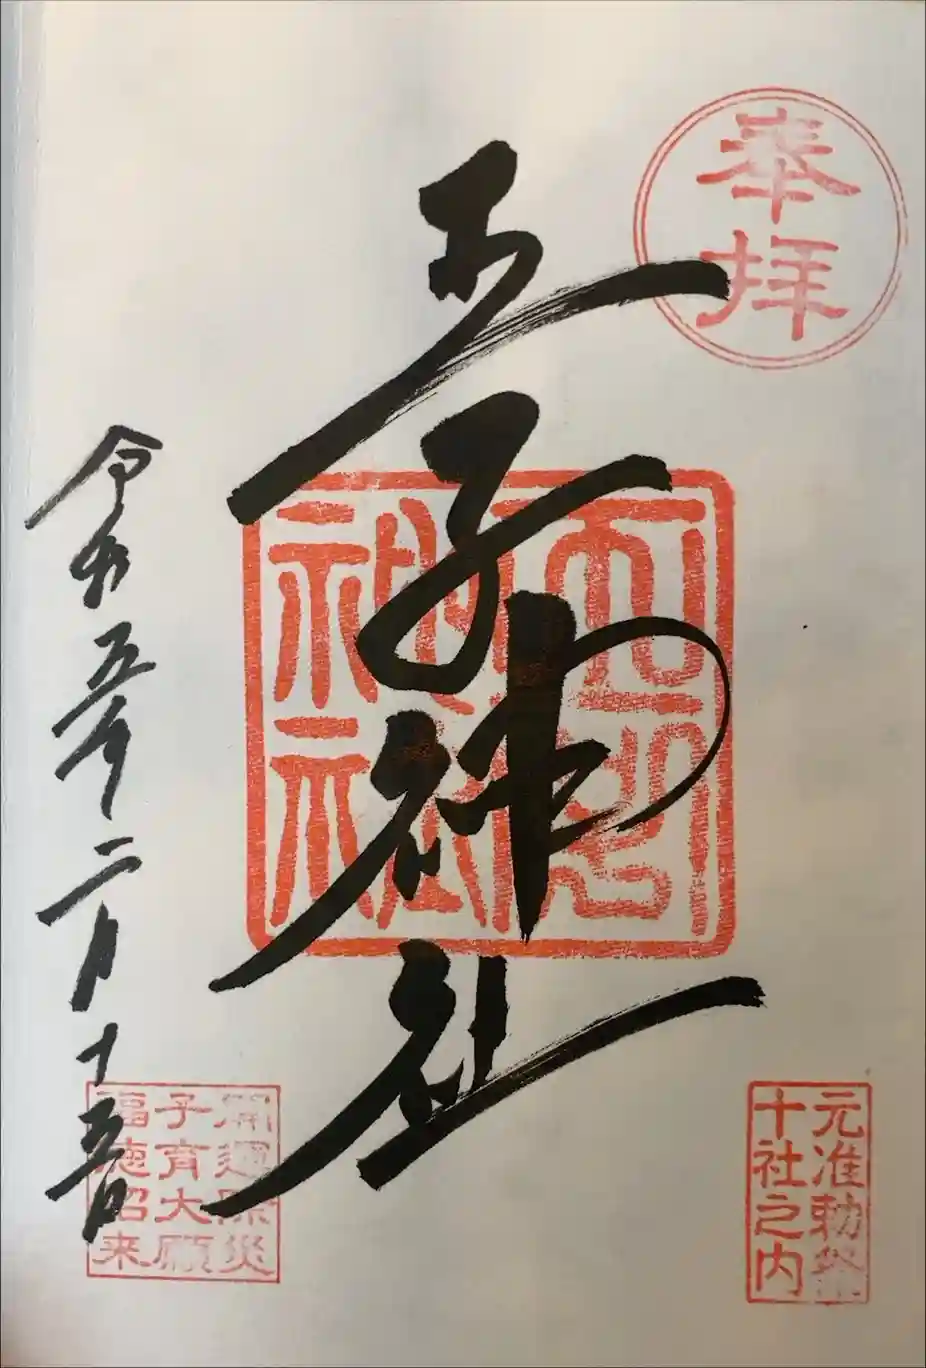 奉拝
王子神社
王子神社
元准勅祭
十社之内
令和五年二月十五日
開運除災
子育大願
福徳招来